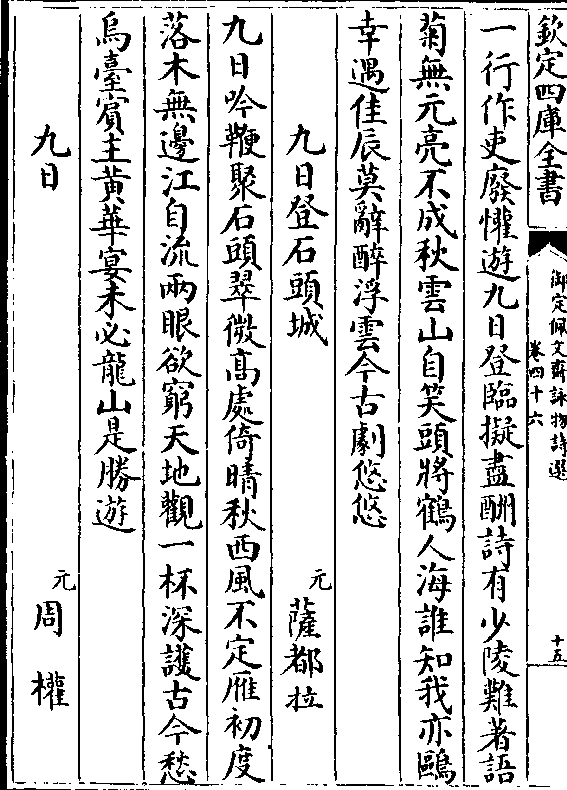 欽定四庫全書
御定佩文齋詠物詩選
卷四十六
十五
一行作吏廢懽遊九日登臨擬盡酬詩有少陵難著語
菊無元亮不成秋雲山自笑頭將鶴人海誰知我亦鷗
幸遇佳辰莫辭醉浮雲今古劇悠悠
九日登石頭城
元
薩都拉
九日吟鞭聚石頭翠微高處倚晴秋西風不定雁初度
落木無邊江自流兩眼欲窮天地觀一杯深護古今愁
烏臺賓主黃華宴未必龍山是勝遊
九日
元
周權